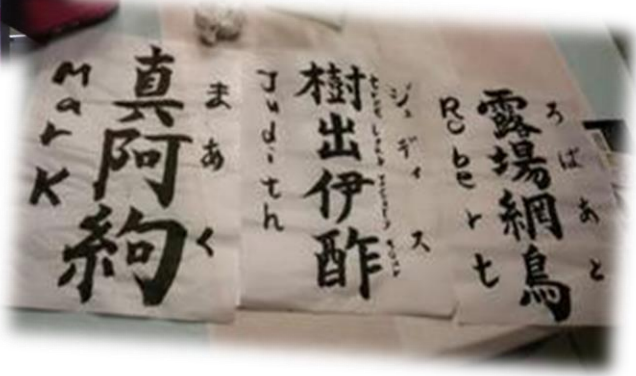 Mark
真阿絇
まあく
Judith
樹出伊酢
ジュディス
Robert
露場網鳥
ろばあと